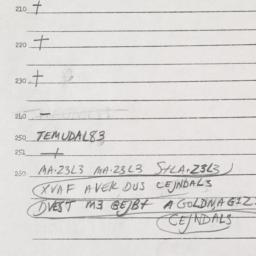 210 +
220 +
230 +
240 –
250 TEMUDAL83
251 +
260 MA.23L3 MA.23L3 SYLA.23L3
XVAF AVEK DUS CEJNDAL3
DVEST M3 BEJB7 A GOLDNAG1Z
CEJNDAL3